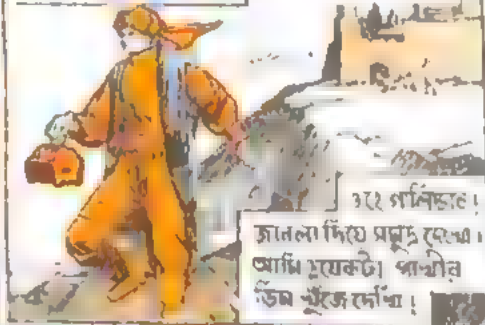 ওহে গালিভার।
জানলা দিয়ে সমুদ্র দেখো।
আমি দুয়েকটা পাখীর
ডিম খুঁজে দেখি।